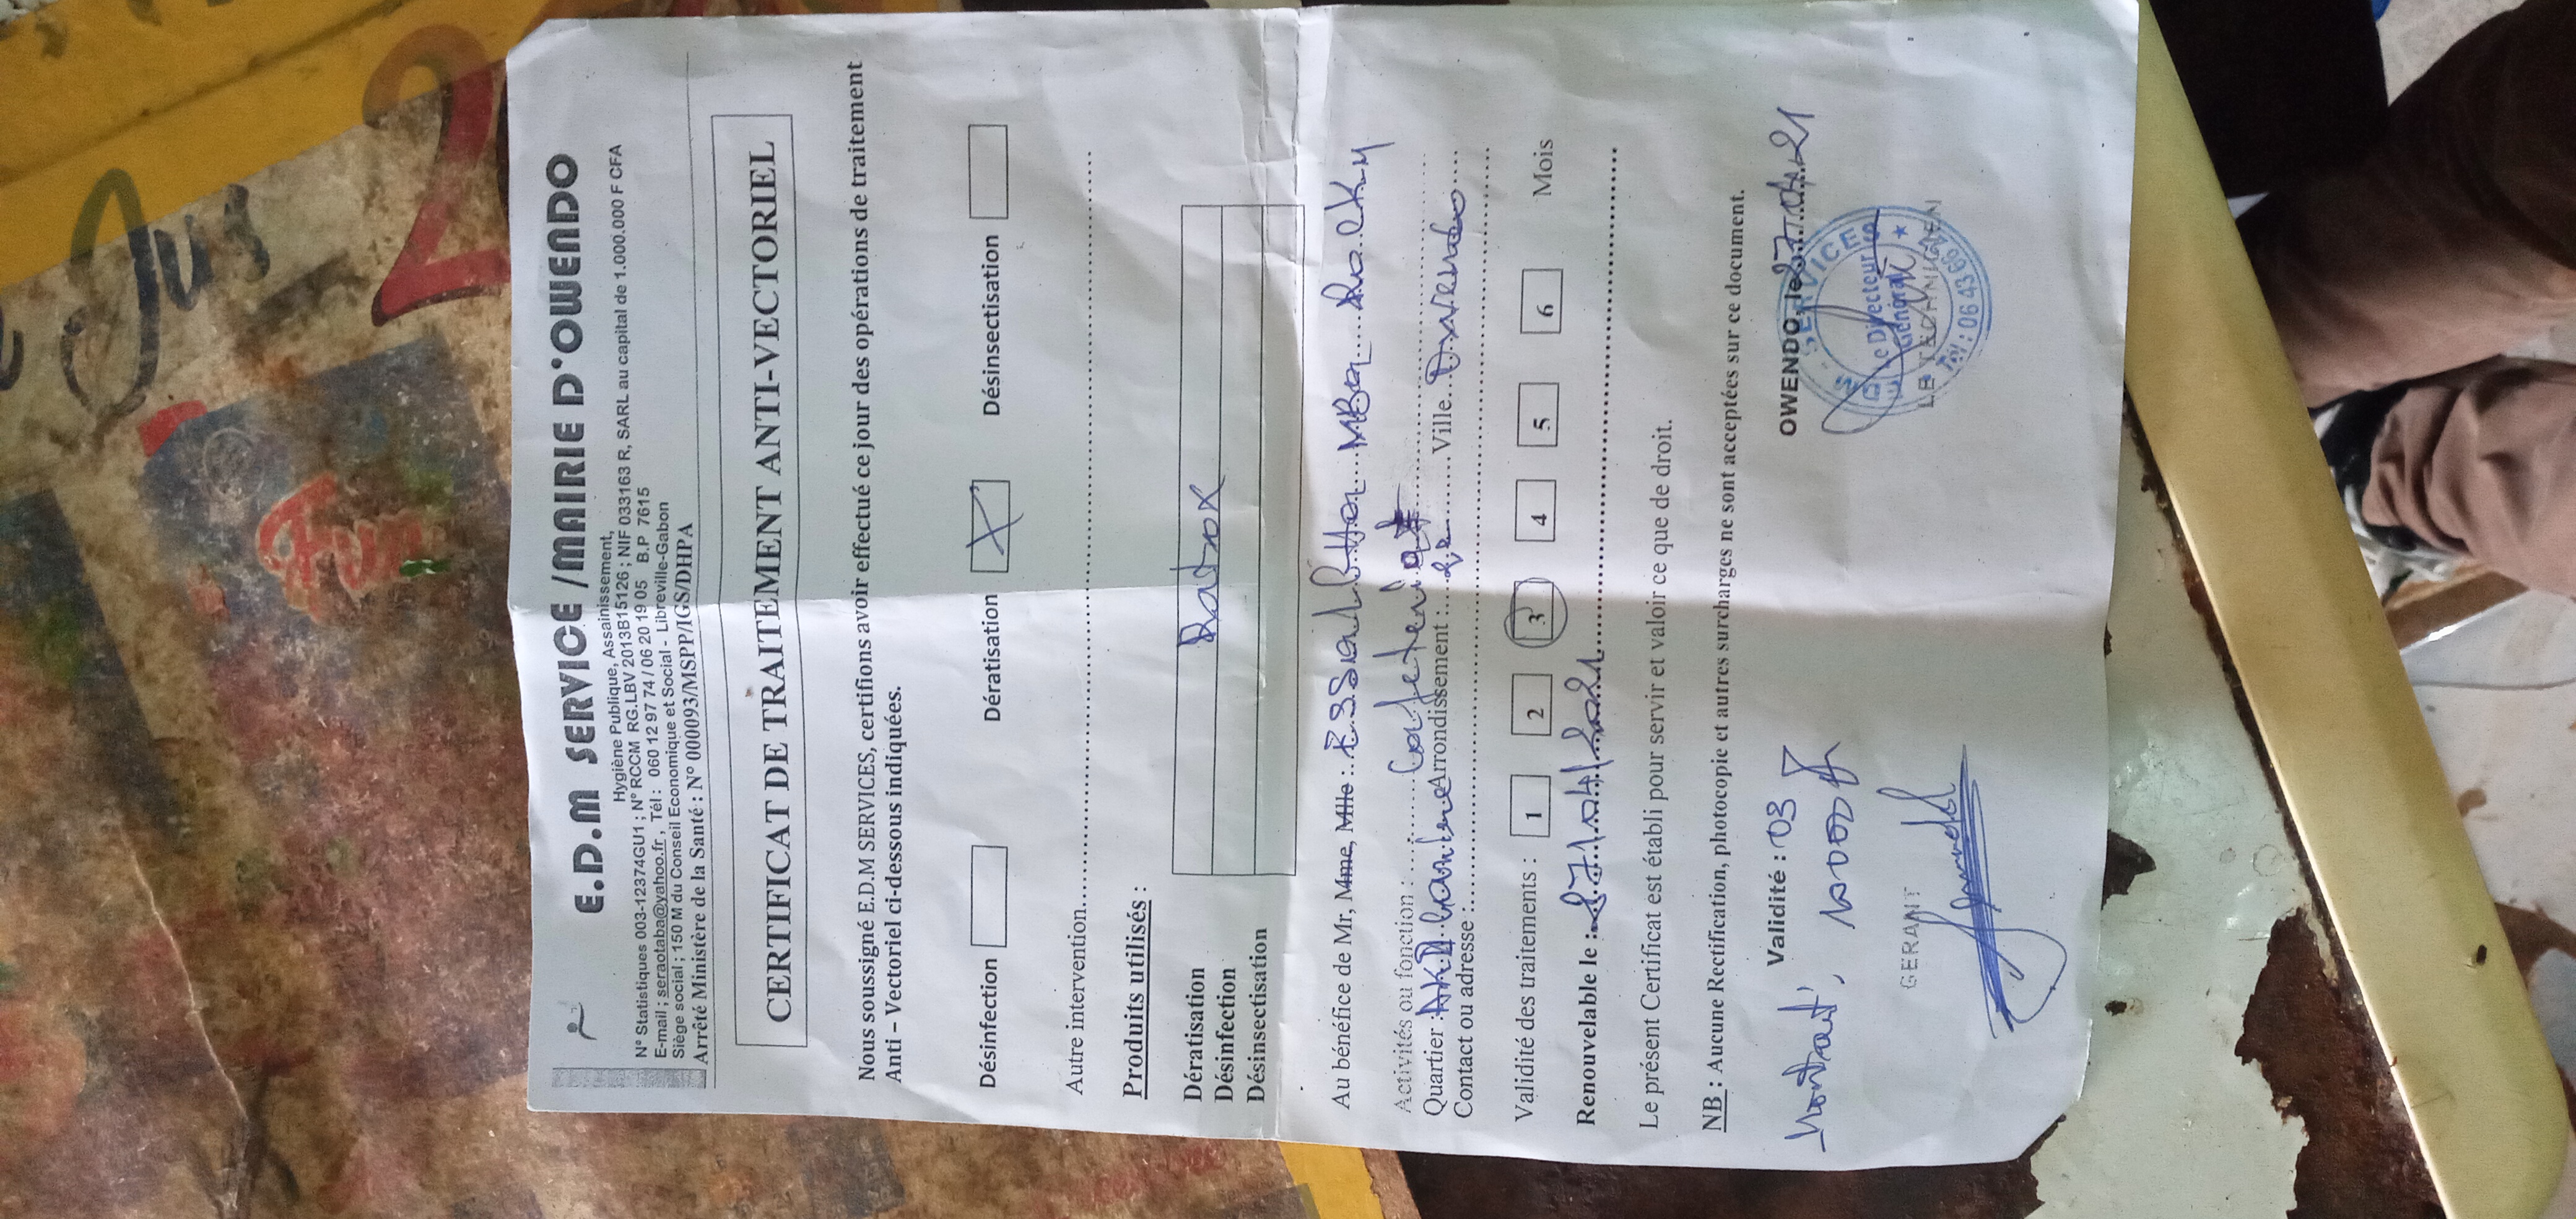 E.D.M SERVICE /MAIRIE D'OWENDO
Hygiène Publique, Assainissement,
N° Statistiques 003-12374GU1 ; N° RCCM RG.LBV 2013B15126 ; NIF 033163 R, SARL au capital de 1.000.000 F CFA
E-mail ; seraotaba@yahoo.fr , Tél : 060 12 97 74 / 06 20 19 05 B.P 7615
Siège social ; 150 M du Conseil Economique et Social - Libreville-Gabon
Arrêté Ministère de la Santé : N° 000093/MSPP/IGS/DHPA
CERTIFICAT DE TRAITEMENT ANTI-VECTORIEL
Nous soussigné E.D.M SERVICES, certifions avoir effectué ce jour des opérations de traitement
Anti – Vectoriel ci-dessous indiquées.
Désinfection Dératisation X Désinsectisation
Autre intervention
Produits utilisés :
Dératisation Ratrox
Désinfection
Désinsectisation
Au bénéfice de Mr, Mme, Mlle : MBa Rocky
Activités ou fonction :
Quartier : Arrondissement : Ville Owendo
Contact ou adresse :
Validité des traitements : 1 2 3 4 5 6 Mois
Renouvelable le : 27/04/2021
Le présent Certificat est établi pour servir et valoir ce que de droit.
NB : Aucune Rectification, photocopie et autres surcharges ne sont acceptées sur ce document.
Validité : 03 OWENDO, le 27/01/21
Montant,
GERANT
SERVICES
Le Directeur
Général
Tél : 06 43 66 24
LE TECHNICIEN
Jus
Fem